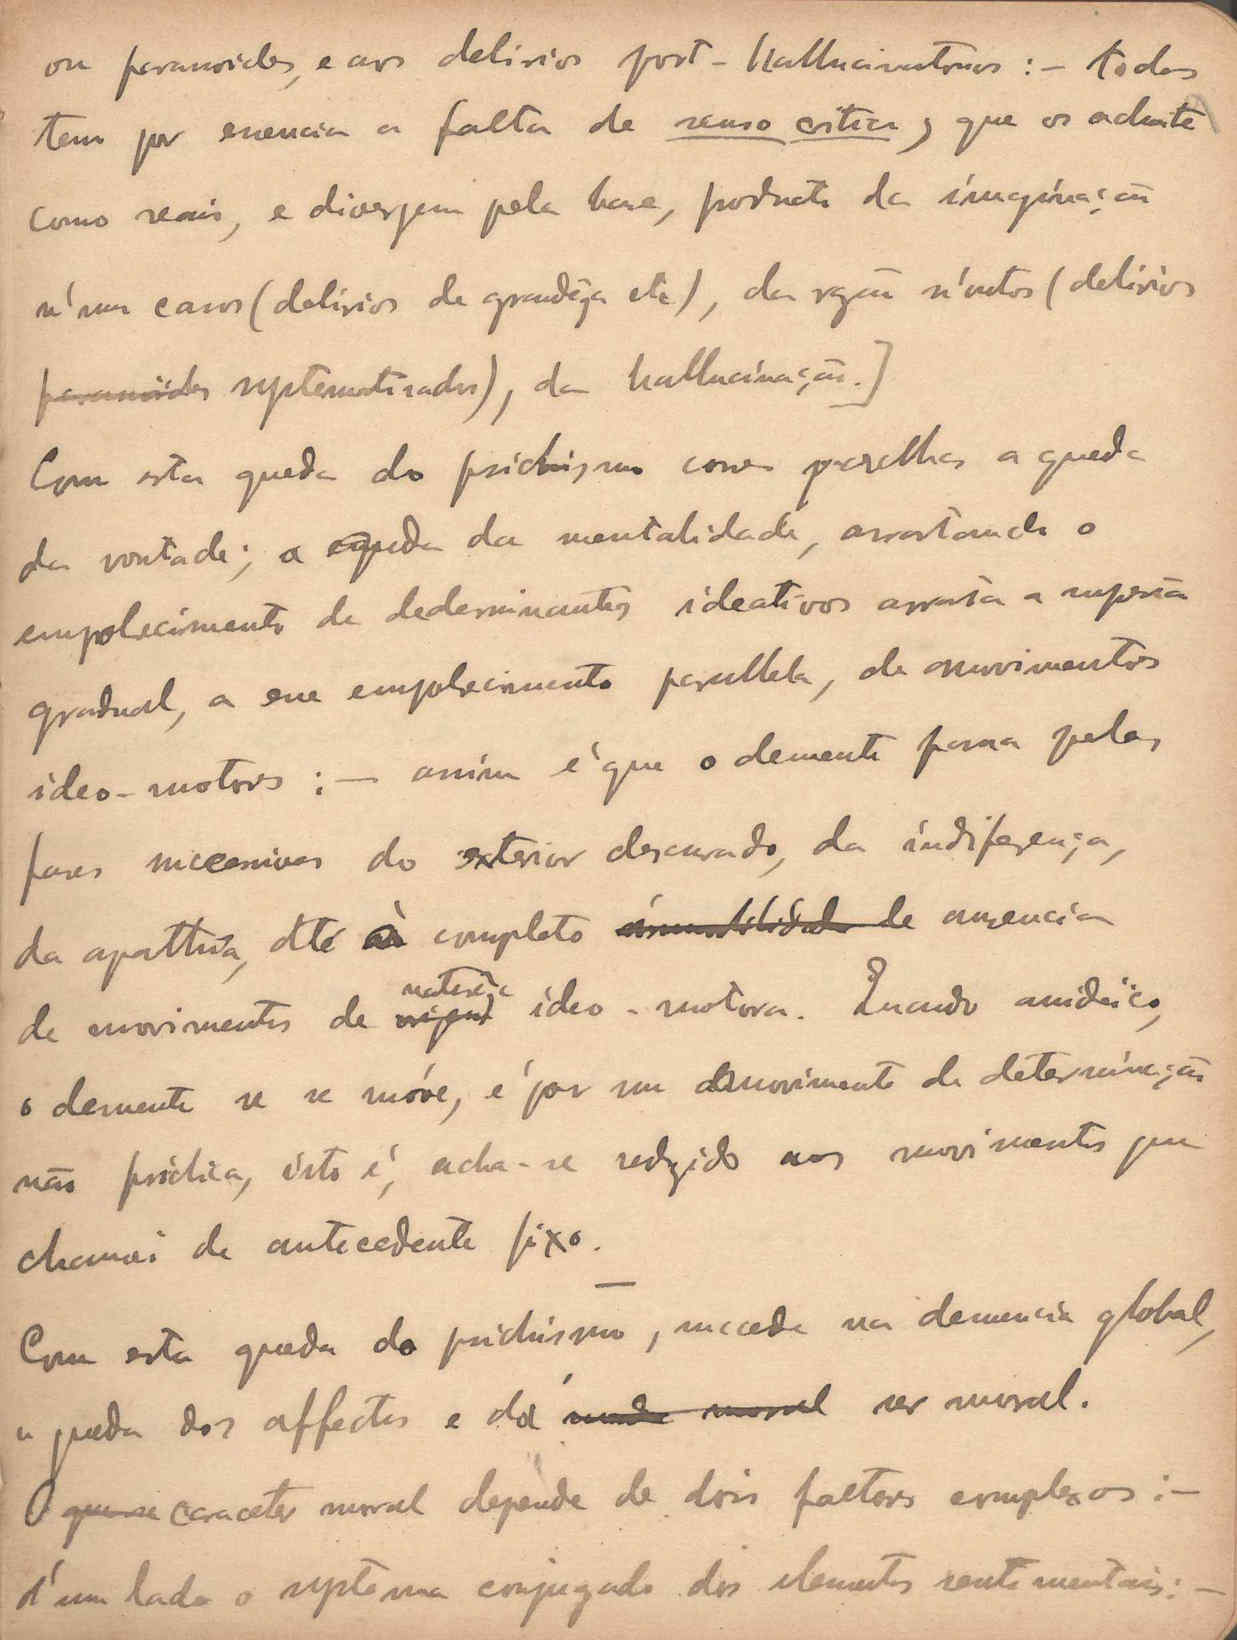 ou paranoides, e aos delirios post-hallucinatorios :- todos
tem por essencia a falta de senso critico, que os admitte
como reaes, e divergem pela base, producto da imaginação
n'uns casos (delirios de grandeza etc), da razão n'outros (delirios
paranoides systematisados), da hallucinação.]
Com esta queda do psichismo corre parelhas a queda
da vontade; a queda da mentalidade, arrastando o
empobrecimento de dederminantes ideativos arrasta a
gradual, a seu empobrecimento parallela, de movimentos
ideo-motores :- assim é que o demente passa pelas
fases successivas do exterior descurado, da indiferença,
da apathia, até à completa immobilidade de ausencia
de movimentos de origem natureza ideo-motora. Quando anideico,
o demente se se móve, é por um movimento de determinação
não psichica, isto é, acha-se reduzido aos movimentos que
chamei de antecedente fixo.
—
Com esta queda do psichismo, succede na demencia global,
a queda dos affectos e do mundo moral ser moral.
O que se caracter moral depende de dois factores complexos :-
d'um lado o systema conjugado dos elementos sentimentais :-